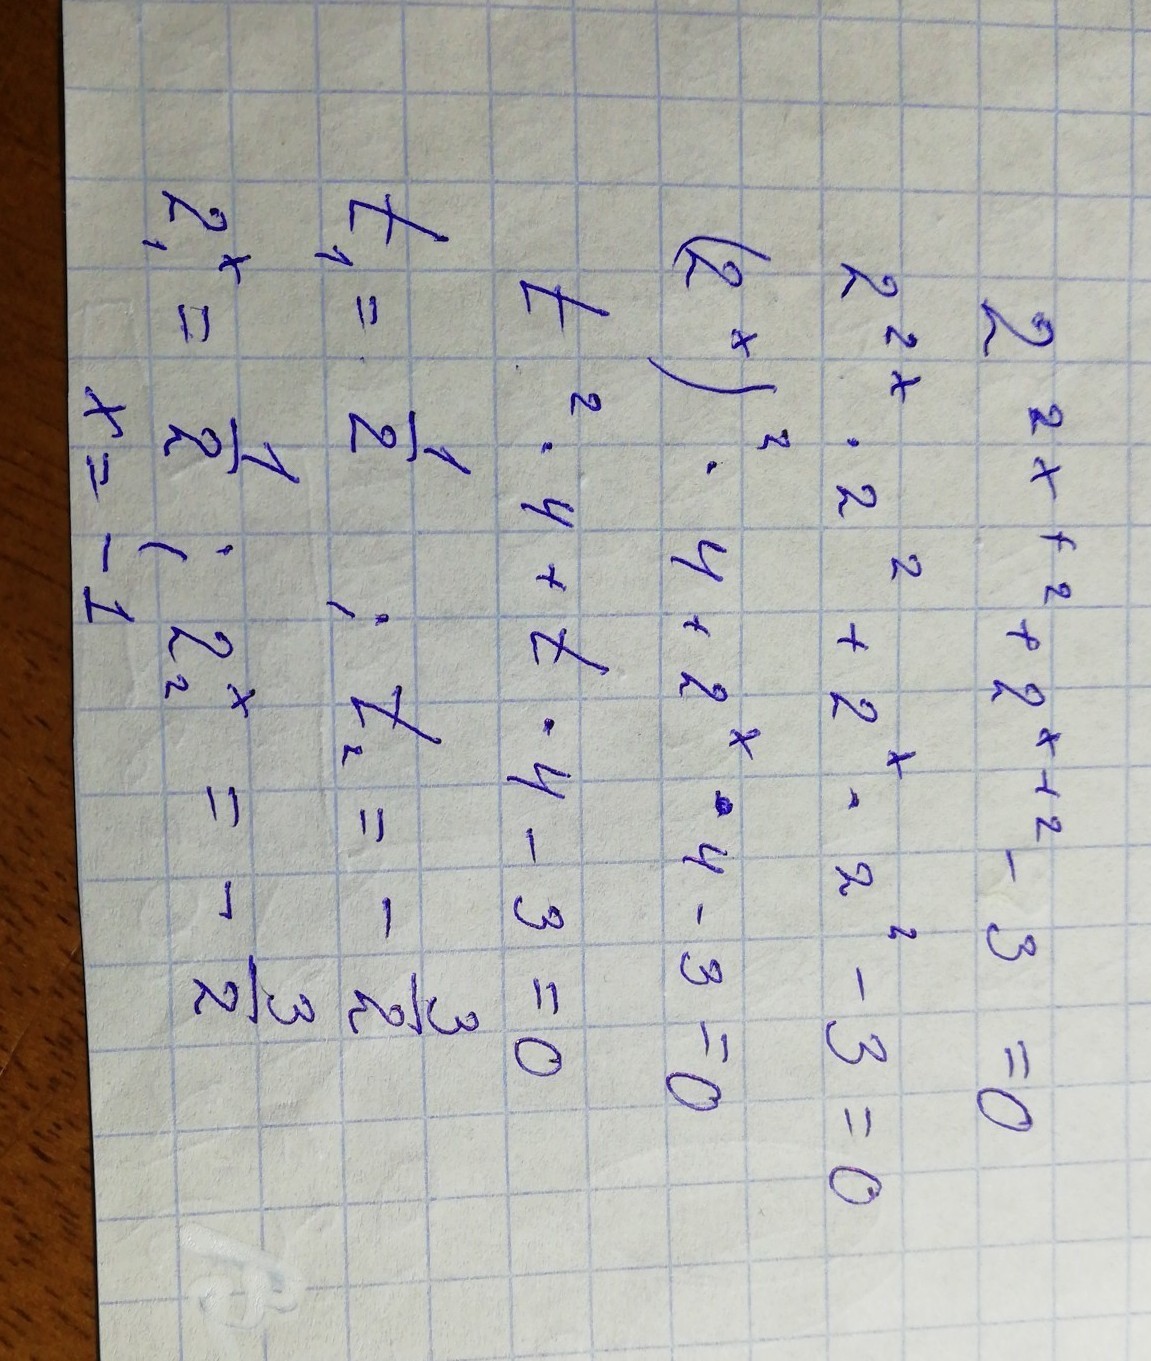 2^{2x+2} + 2^{x+2} - 3 = 0
2^{2x} · 2^2 + 2^x · 2^2 - 3 = 0
(2^x)^2 · 4 + 2^x · 4 - 3 = 0
t^2 · 4 + t · 4 - 3 = 0
t_1 = 1/2 ; t_2 = - 3/2
2_1^x = 1/2 ; 2_2^x = - 3/2
x = - 1